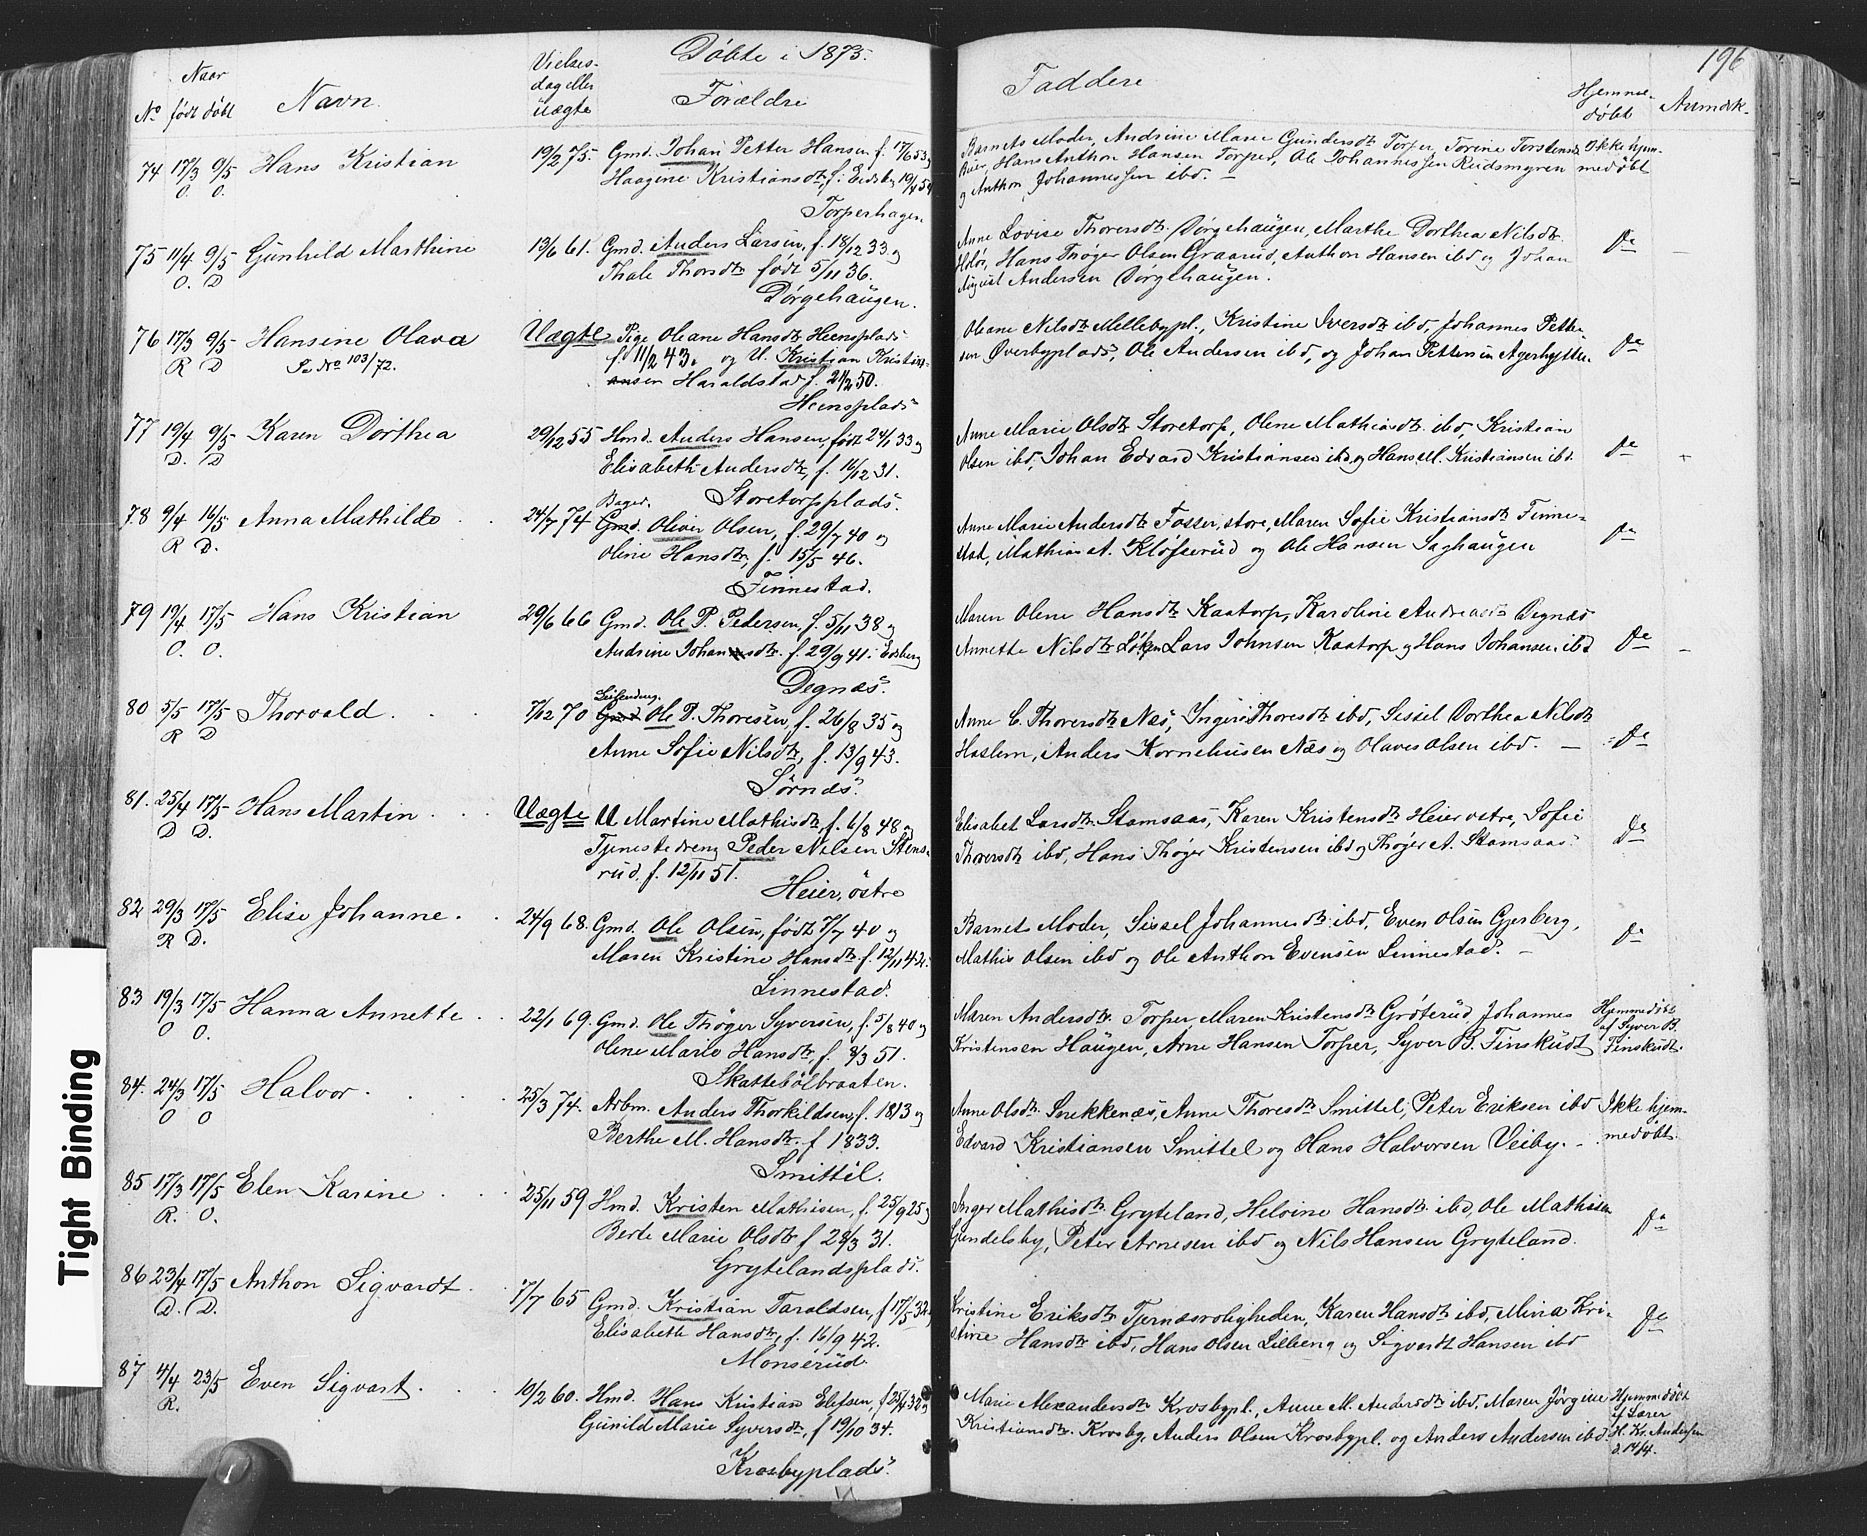 Döbte i 1875.
196
No
Naar
födt döbt
Navn
Vielses-
dag eller
Uægte
Forældre
Faddere
Hjemme-
döbt
Anmærk.
74 17/3 9/5 Hans Kristian
O. O.
19/2 75. Gmd. Johan Petter Hansen f. 17/6 53 og
Haagine Kristiansdtr, f. i Eidsbg 19/4 54
Torperhagen
Barnets Moder, Andrine Marie Gundersdtr Torper, Torine Torstensdtr
Bier, Hans Anthon Hansen Torper, Ole Johannessen Reidsmyren
og Anthon Johannessen ibd. —
Ikke hjem-
medöbt
75 11/4 9/5 Gunhild Marthine
O. D
13/6 61. Gmd. Anders Larsen, f. 18/12 33 og
Thale Thorsdtr födt 5/11 36.
Dörgehaugen.
Anne Lovise Thoresdtr. Dörgehaugen, Marthe Dorthea Nilsdtr
Hans Thöger Olsen Graarud, Anthon Hansen ibd og Johan
August Andersen Dörgehaugen.
Do
76 17/3 9/5 Hansine Olava
R D
Se No 103/72.
Uægte Pige Oleane Hansdtr Heensplads
f. 11/2 43. og U. Kristian Kristi-
ansen Haraldstad f. 21/2 50.
Heensplads
Oleane Nilsdtr Mellebypl., Kristine Iversdtr ibd, Johannes Petter-
sen Överbyplads, Ole Andersen ibd, og Johan Pettersen Agerhytten.
Do
77 19/4 9/5 Karen Dorthea
D. D
29/12 55 Hmd. Anders Hansen, födt 24/1 33 og
Elisabeth Andersdtr, f. 11/12 31.
Storetorpplads.
Anne Marie Olsdtr Storetorp, Olene Mathiasdtr ibd, Kristian
Olsen ibd, Johan Edvard Kristiansen ibd og Hans M. Kristiansen ibd.
Do
78 9/4 16/5 Anna Mathilde
R D.
24/7 74 Bager.
Gmd. Oliver Olsen, f. 29/7 40 og
Oline Hansdtr, f. 15/5 46.
Finnestad.
Anne Marie Andersdtr Fosser, store, Maren Sofie Kristiansdtr Finne-
stad, Mathias A. Klöfserud og Ole Hansen Saghaugen
Do
79 19/4 17/5 Hans Kristian
O. O.
29/6 66 Gmd. Ole P. Pedersen, f. 5/11 38 og
Andrine Johansdtr. f. 29/9 41 i Eidsberg
Degnæs.
Maren Olene Hansdtr Kaatorp, Karoline Andreasdtr Degnæs
Annette Nilsdtr Löken Lars Johnsen Kaatorp og Hans Johansen ibd
Do
80 5/5 17/5 Thorvald
R D
7/12 70 Gmd. Ole P. Thoresen, f. 26/8 35 og
Anne Sofie Nilsdtr, f. 13/9 43.
Sörnæs.
Anne C. Thoresdtr Næs, Inger Thoresdtr ibd, Sissel Dorthea Nilsdtr
Haslem, Anders Korneliusen Næs og Olaves Olsen ibd. —
Do
81. 25/4 17/5 Hans Martin
D D.
Uægte U Martine Mathisdtr, f. 6/8 48 og
Tjenestedreng Peder Nilsen Stens-
rud, f. 12/11 51.
Heier, östre
Elisabet Larsdtr. Stamsaas, Karen Kristensdtr Heier östre, Sofie
Thoresdtr ibd, Hans Thöger Kristensen ibd og Thöger A. Stamsaas
Do
82 29/3 17/5 Elise Johanne
R D.
24/9 68. Gmd. Ole Olsen, födt 7/7 40 og
Maren Kristine Hansdtr f. 12/11 42.
Linnestad.
Barnets Moder, Sissel Johannesdtr ibd, Even Olsen Gjerberg,
Mathis Olsen ibd og Ole Anthon Evensen Linnestad. —
Do
83 19/3 17/5 Hanna Annette
O O.
22/1 69. Gmd. Ole Thöger Syversen, f. 5/8 40 og
Olene Marie Hansdtr, f. 8/3 51.
Skattebölbraaten.
Maren Andersdtr. Torper, Maren Kristensdtr Gröterud, Johannes
Kristensen Haugen, Arne Hansen Torper, Syver B. Finskudt
Hjemmedöbt
af Syver B.
Finskudt.
84. 24/3 17/5 Halvor
O O
25/3 74. Arbm. Anders Thorkildsen, f. 1813 og
Berthe M. Hansdtr. f 1833.
Smittil.
Anne Olsdtr. Snekkenæs, Anne Thoresdtr Smittel, Peter Eriksen ibd
Edvard Kristiansen Smittel og Hans Halvorsen Veiby.
Ikke hjem-
medöbt.
85 17/3 17/5 Elen Karine
R. O.
25/11 59 Hmd. Kristen Mathisen, f. 25/9 25 og
Berte Marie Olsdtr f 28/3 31.
Grytelandsplads.
Inger Mathisdtr Gryteland, Helvine Hansdtr ibd, Ole Mathisen
Gundelsby, Peter Arnesen ibd og Nils Hansen Gryteland.
Do
86 23/4 17/5 Anthon Sigvardt
D. D.
7/7 65 Gmd. Kristian Taraldsen, f 17/5 32
Elisabeth Hansdtr, f. 16/9 42.
Monserud.
Kristine Eriksdtr, Tjernæsroligheden, Karen Hansdtr ibd, Mina Kri-
stine Hansdtr ibd, Hans Olsen Lilleeng og Sigvardt Hansen ibd
Do
87 4/4 23/5 Even Sigvart
R.
10/2 60. Hmd. Hans Kristian Elefsen, f 25/4 38 og
Gunild Marie Syversdtr, f 19/10 34.
Krosbyplads.
Marie Alexandersdtr Krosbypl., Anne M. Andersdtr ibd, Maren Jörgine
Kristiansdtr. Krosby, Anders Olsen Krosbypl. og Anders Andersen ibd.
Hjemmedöbt
af Lærer
H. Kr. Andersen
d. 14/4.
Tight Binding